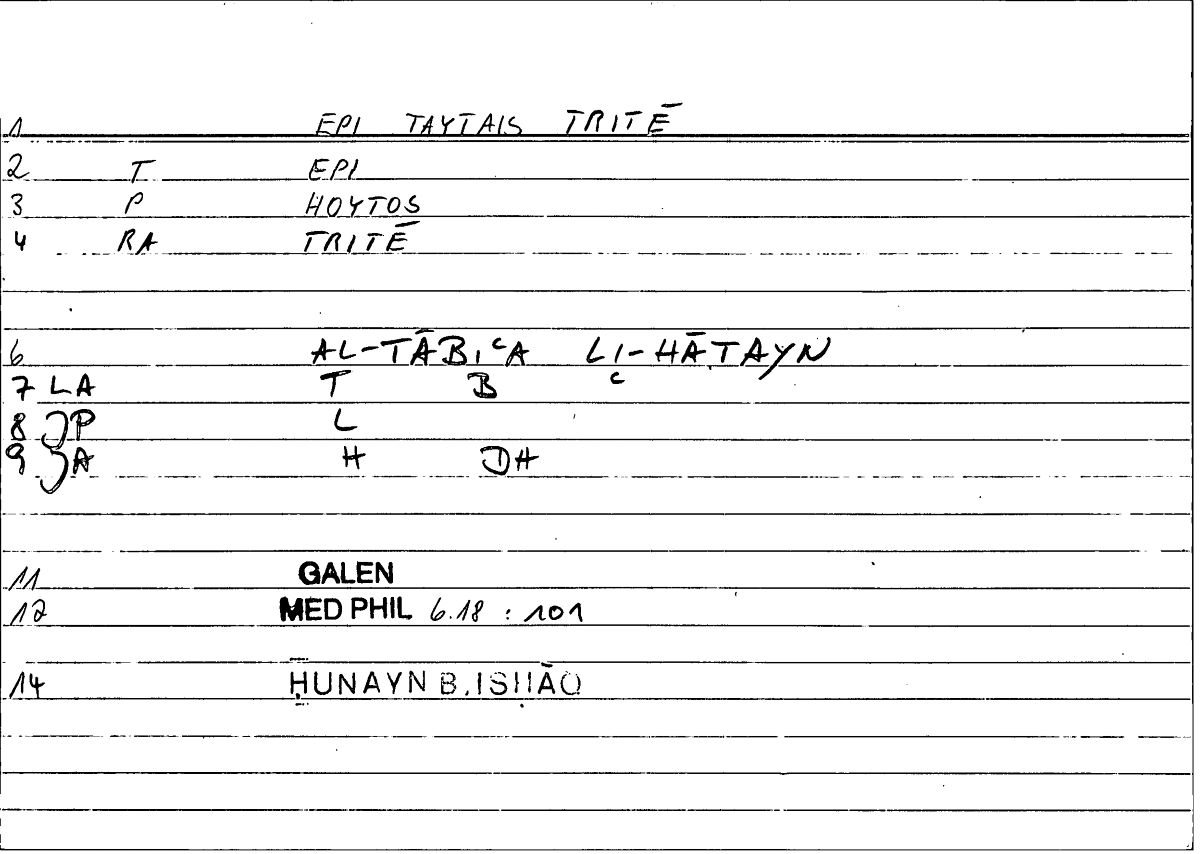 1 EPI TAYTAIS TRITĒ
2 T EPI
3 P HOYTOS
4 RA TRITĒ
6 AL-TĀBIᶜA LI-HĀTAYN
7 LA T B ᶜ
8 JP L
9 JA H DH
11 GALEN
12 MED PHIL 6.18 : 101
14 ḤUNAYN B. ISḤĀQ